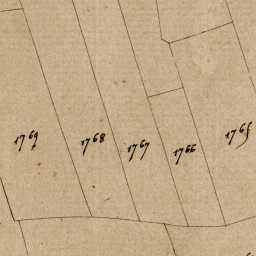 1769
1768
1767
1766
1765